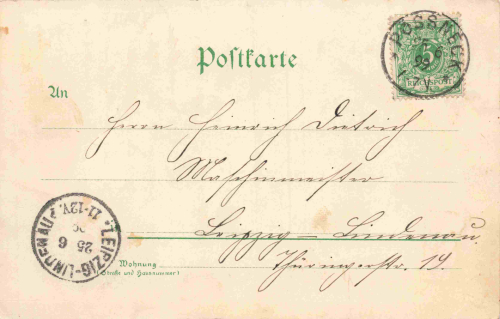 Postkarte
PÖSSNECK
5
REICHSPOST
An
Herrn Heinrich Dietrich
Maschinmeister
Leipzig – Lindenau.
Thüringerstr. 19.
Wohnung
(Straße und Hausnummer)
LEIPZIG-LINDENAU
25
6
11-12V.